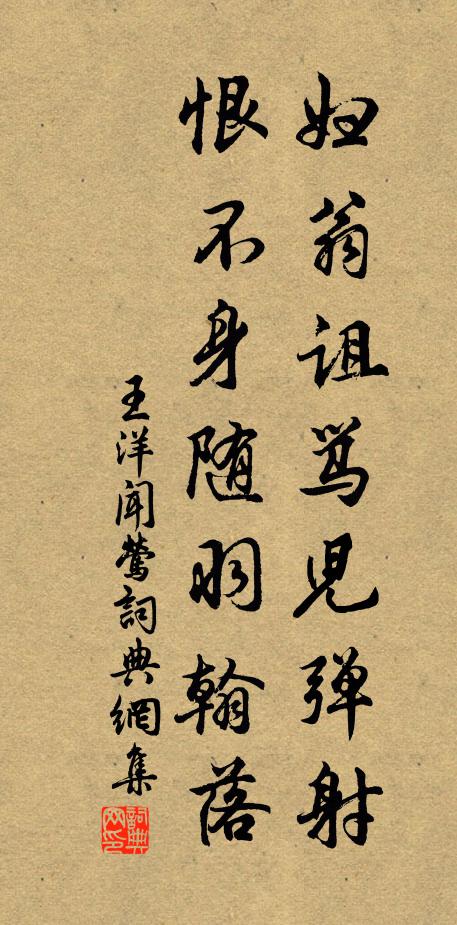 妇翁诅骂児弹射
恨不身随羽翰落
王洋闻莺詞典網集
詞典网印